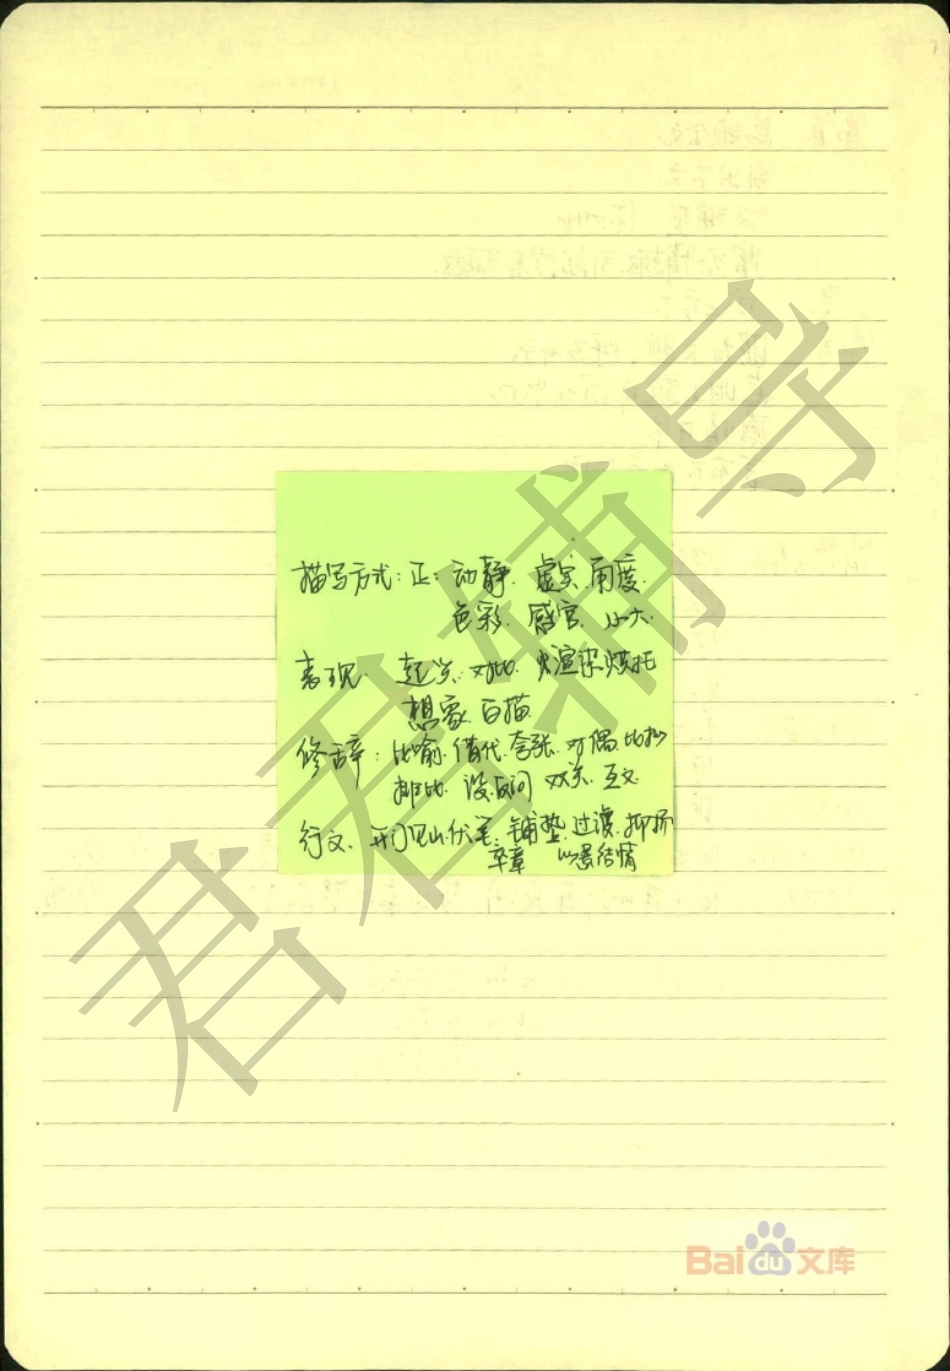 描写方式：正：动静、虚实、角度、
色彩、感官、小大、
表现、起兴、对比、渲染烘托
想象、白描
修辞：比喻、借代、夸张、对偶、比拟
排比、设、反问 双关、互文、
行文、开门见山、伏笔、铺垫、过渡、抑扬
卒章 以景结情
君君辅导
Baidu文库